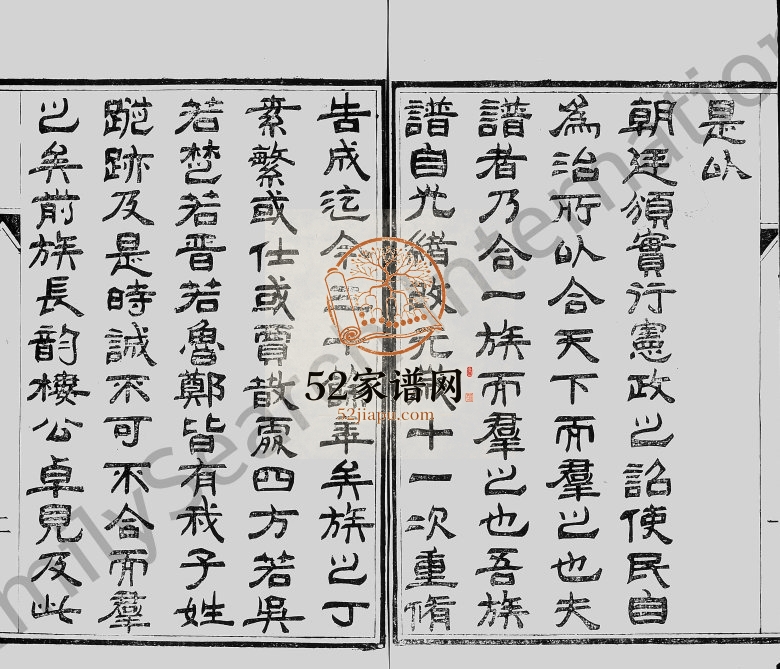 是以
朝廷頒實行憲政之詔使民自
為治所以合天下而羣之也夫
譜者乃合一族而羣之也吾族
譜自光緒改元十一次重脩
告成迄今三十餘年矣族之丁
素繁或仕或賈散處四方若吳
若楚若晉若魯鄭皆有我子姓
蹤跡及是時誠不可不合而羣
之矣前族長韵樓公卓見及此
52家谱网
52jiapu.com
FamilySearch International